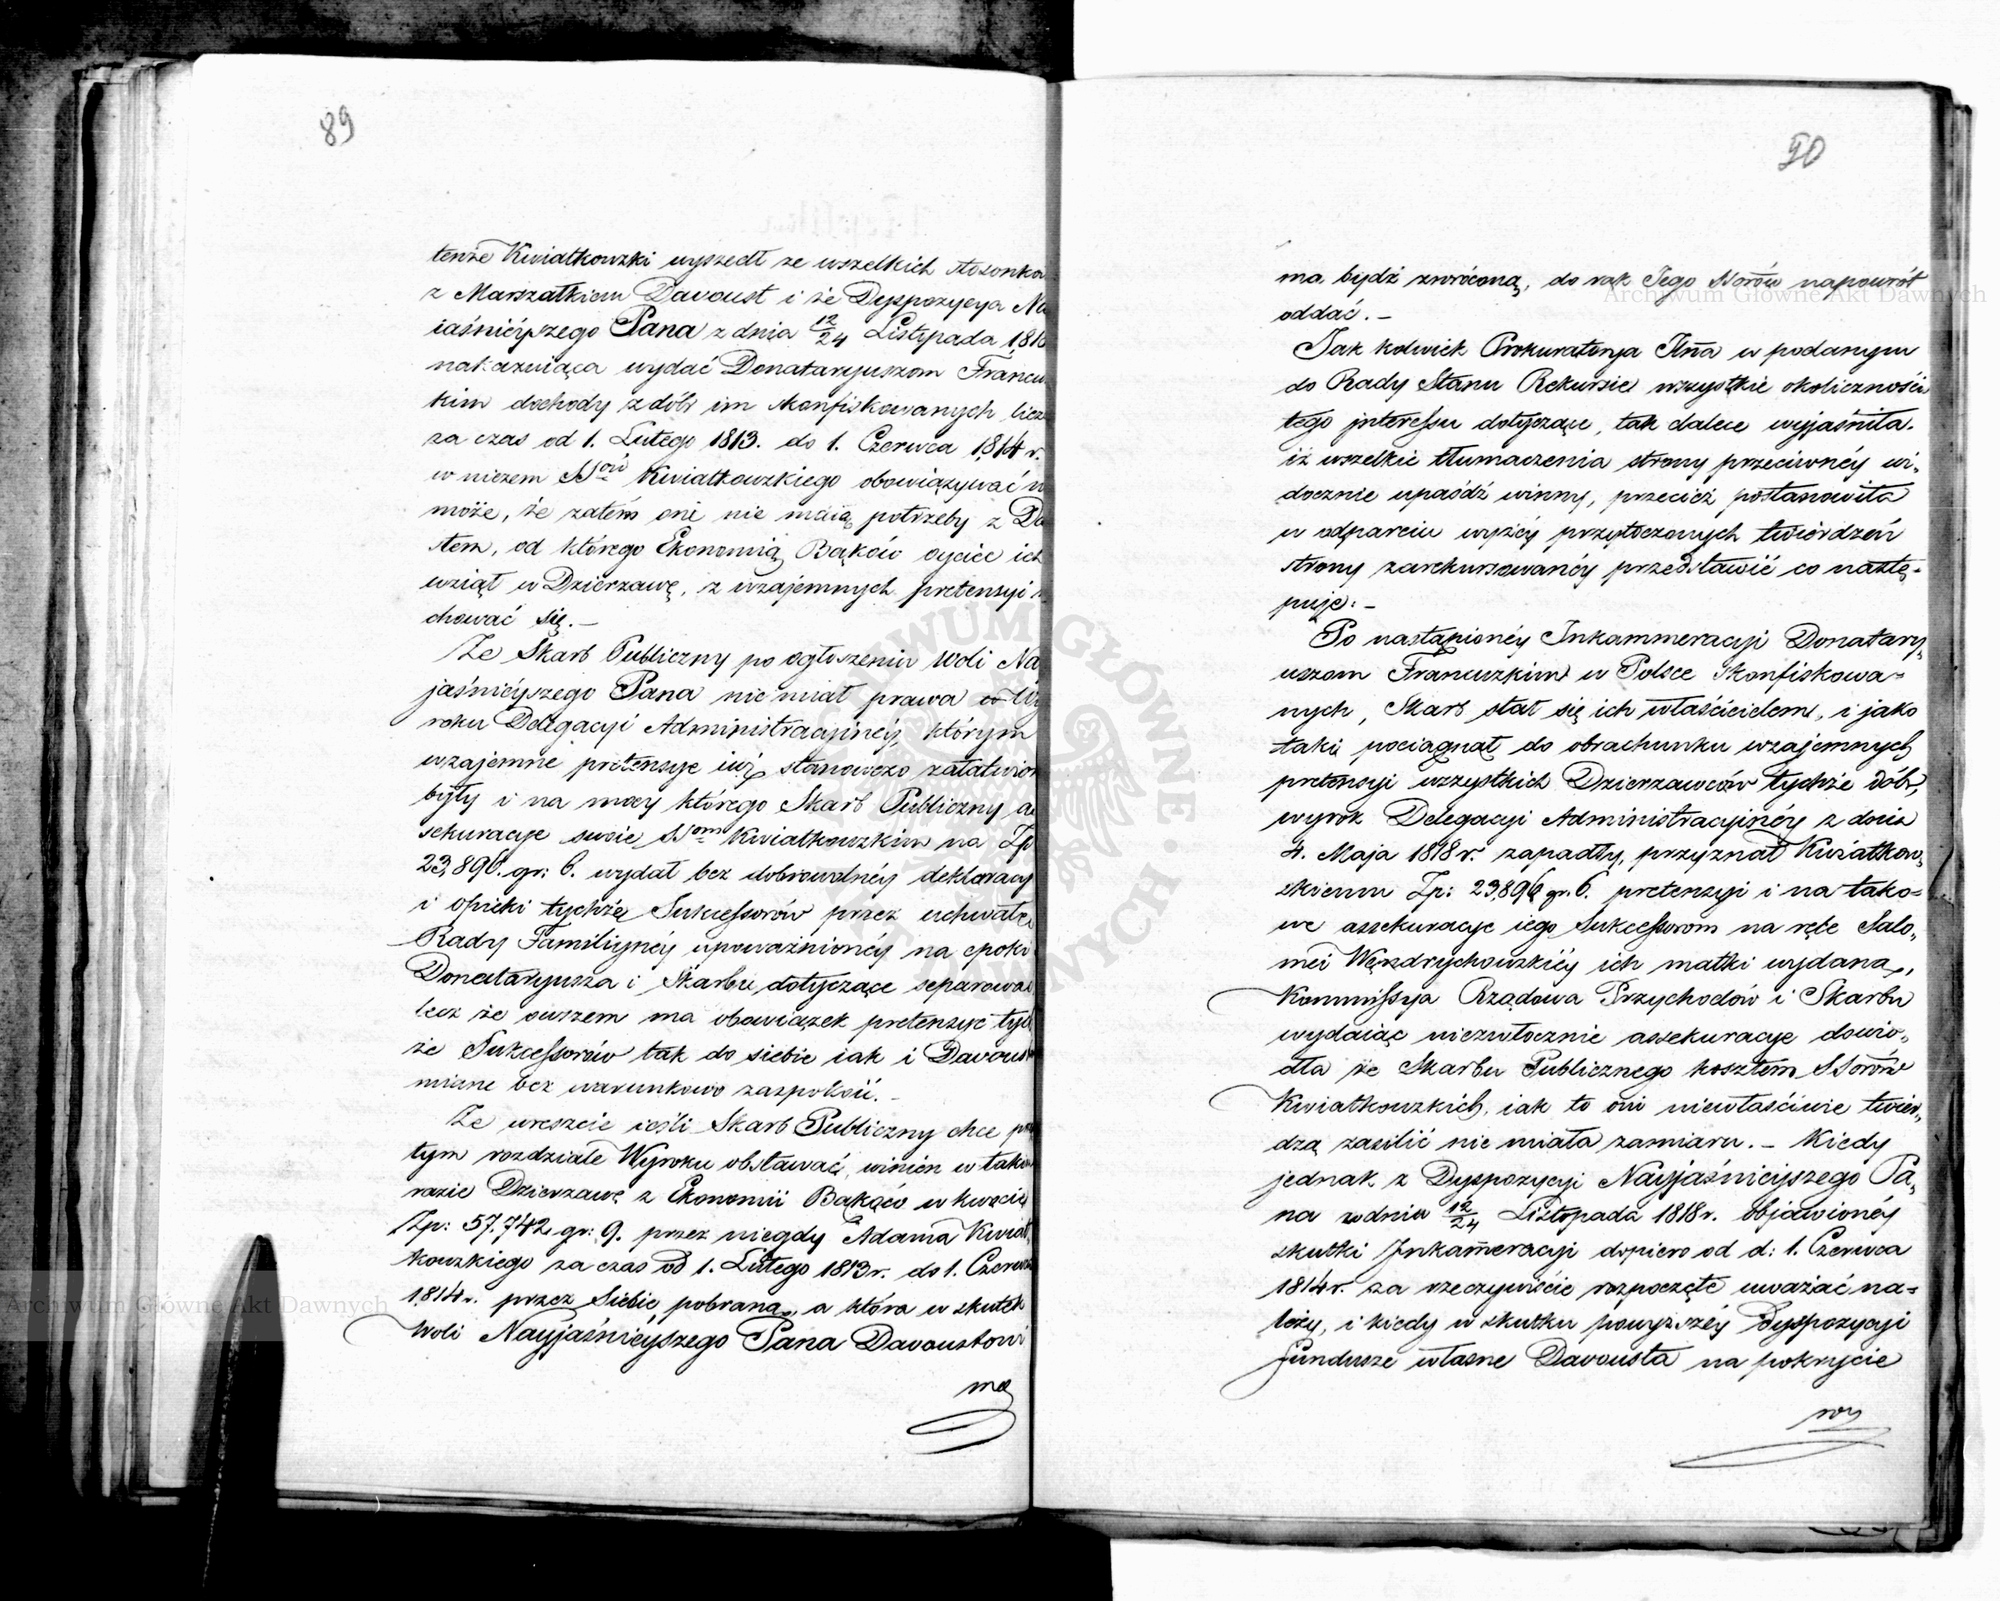 89
tenże Kwiatkowski wyszedł ze wszelkich stosunkow
z Marszałkiem Davoust i że Dyspozycya Na
iaśnieyszego Pana z dnia 12/24 Listopada 181
nakazuiąca wydać Donataryuszom Francu
kim dochody z dóbr im skonfiskowanych licz
za czas od 1. Lutego 1813. do 1. Czerwca 1814 r.
w niczem SSorów Kwiatkowskiego obowiązywać n
może, że zatém oni nie maią potrzeby z Da
stem, od którego Ekonomią Bąków oyciec ich
wziął w Dzierzawę, z wzajemnych pretensyi
chować się. —
Ze Skarb Publiczny po ogłoszeniu woli Na
jaśnieyszego Pana nie miał prawa co Wy
roku Delegacyi Administracyinéy, którym
wzajemne pretensye iuż stanowczo załatwion
były i na mocy którego Skarb Publiczny as
sekuracye swoie SSrom Kwiatkowskim na Zp
23,896. gr: 6. wydał bez dobrowolnéy deklaracy
i opieki tychże Sukcessorów przez uchwałę
Rady Familiynéy upoważnionéy na epoki
Donataryusza i Skarbu dotyczące separować
lecz że owszem ma obowiązek pretensye tych
że Sukcessorów tak do siebie iak i Davoust
miane bez warunkowo zaspokoić. —
Ze wreszcie ieśli Skarb Publiczny chce prz
tym rozdziale Wyroku obstawać, winien w takim
razie Dzierzawę z Ekonomii Bąków w kwocie
Zp: 57,742 gr: 9. przez niegdy Adama Kwiat„
kowskiego za czas od 1. Lutego 1813 r. do 1. Czerwca
1814 r. przez Siebie pobraną, a która w skutek
Woli Nayjaśnieyszego Pana Davoustowi
ma
90
ma bydź zwróconą, do rąk Tego SSorów napowrót
oddać. —
Jak kolwiek Prokuratorya Jlna w podanym
do Rady Stanu Rekursie wszystkie okoliczności
tego interessu dotyczące, tak dalece wyjaśniła.
iż wszelkie tłumaczenia strony przeciwnéy wi„
docznie upaśdź winny, przecież postanowiła
w odparciu wyżéy przytoczonych twierdzeń
strony zarekursowanéy przedstawić co nastę-
puje: —
Po nastąpionéy Inkammeracyi Donatary„
uszom Francuzkim w Polsce skonfiskowa=
nych, Skarb stał się ich właścicielem, i jako
taki pociągnął do obrachunku wzajemnych
pretensyi wszystkich Dzierzawców tychże dóbr,
wyrok Delegacyi Administracyinéy z dnia
4. Maja 1818 r. zapadły, przyznał Kwiatkow„
skiemu Zp: 23,896 gr. 6. pretensyi i na tako=
we assekuracye iego Sukcessorom na ręce Salo„
mei Wędrychowskiéy ich matki wydaną,
Kommissya Rządowa Przychodów i Skarbu
wydaiąc niezwłocznie assekuracye dowio„
dła że Skarbu Publicznego kosztem SSorów
Kwiatkowskich, iak to oni niewłaściwie twier„
dzą zasilić nie miała zamiaru. — Kiedy
jednak z Dyspozycyi Nayjaśnieyszego Pa„
na z dnia 12/24 Listopada 1818 r. objawionéy
skutki Inkameracyi dopiero od d: 1. Czerwca
1814 r. za rzeczywiście rozpoczęte uważać na=
leży, i kiedy w skutku powyższéy Dyspozycyi
fundusze własne Davousta na pokrycie